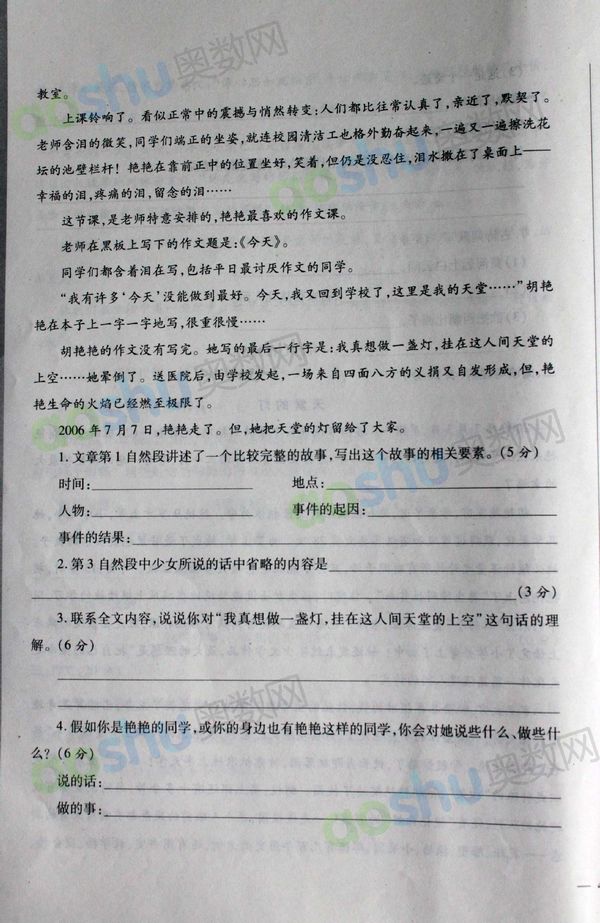 教室。
上课铃响了。看似正常中的震撼与悄然转变:人们都比往常认真了,亲近了,默契了。
老师含泪的微笑,同学们端正的坐姿,就连校园清洁工也格外勤奋起来,一遍又一遍擦洗花
坛的池壁栏杆!艳艳在靠前正中的位置坐好,笑着,但仍是没忍住,泪水撒在了桌面上——
幸福的泪,疼痛的泪,留念的泪……
这节课,是老师特意安排的,艳艳最喜欢的作文课。
老师在黑板上写下的作文题是:《今天》。
同学们都含着泪在写,包括平日最讨厌作文的同学。
“我有许多‘今天’没能做到最好。今天,我又回到学校了,这里是我的天堂……”胡艳
艳在本子上一字一字地写,很重很慢……
胡艳艳的作文没有写完。她写的最后一行字是:我真想做一盏灯,挂在这人间天堂的
上空……她晕倒了。送医院后,由学校发起,一场来自四面八方的义捐又自发形成,但,艳
艳生命的火焰已经燃至极限了。
2006年7月7日,艳艳走了。但,她把天堂的灯留给了大家。
1.文章第1自然段讲述了一个比较完整的故事,写出这个故事的相关要素。(5分)
时间: 地点:
人物: 事件的起因:
事件的结果:
2.第3自然段中少女所说的话中省略的内容是
(3分)
3.联系全文内容,说说你对“我真想做一盏灯,挂在这人间天堂的上空”这句话的理
解。(6分)
4.假如你是艳艳的同学,或你的身边也有艳艳这样的同学,你会对她说些什么、做些什
么?(6分)
说的话:
做的事:
aoshu奥数网
aoshu奥数网
aoshu奥数网
aoshu奥数网
aoshu奥数网
aoshu奥数网